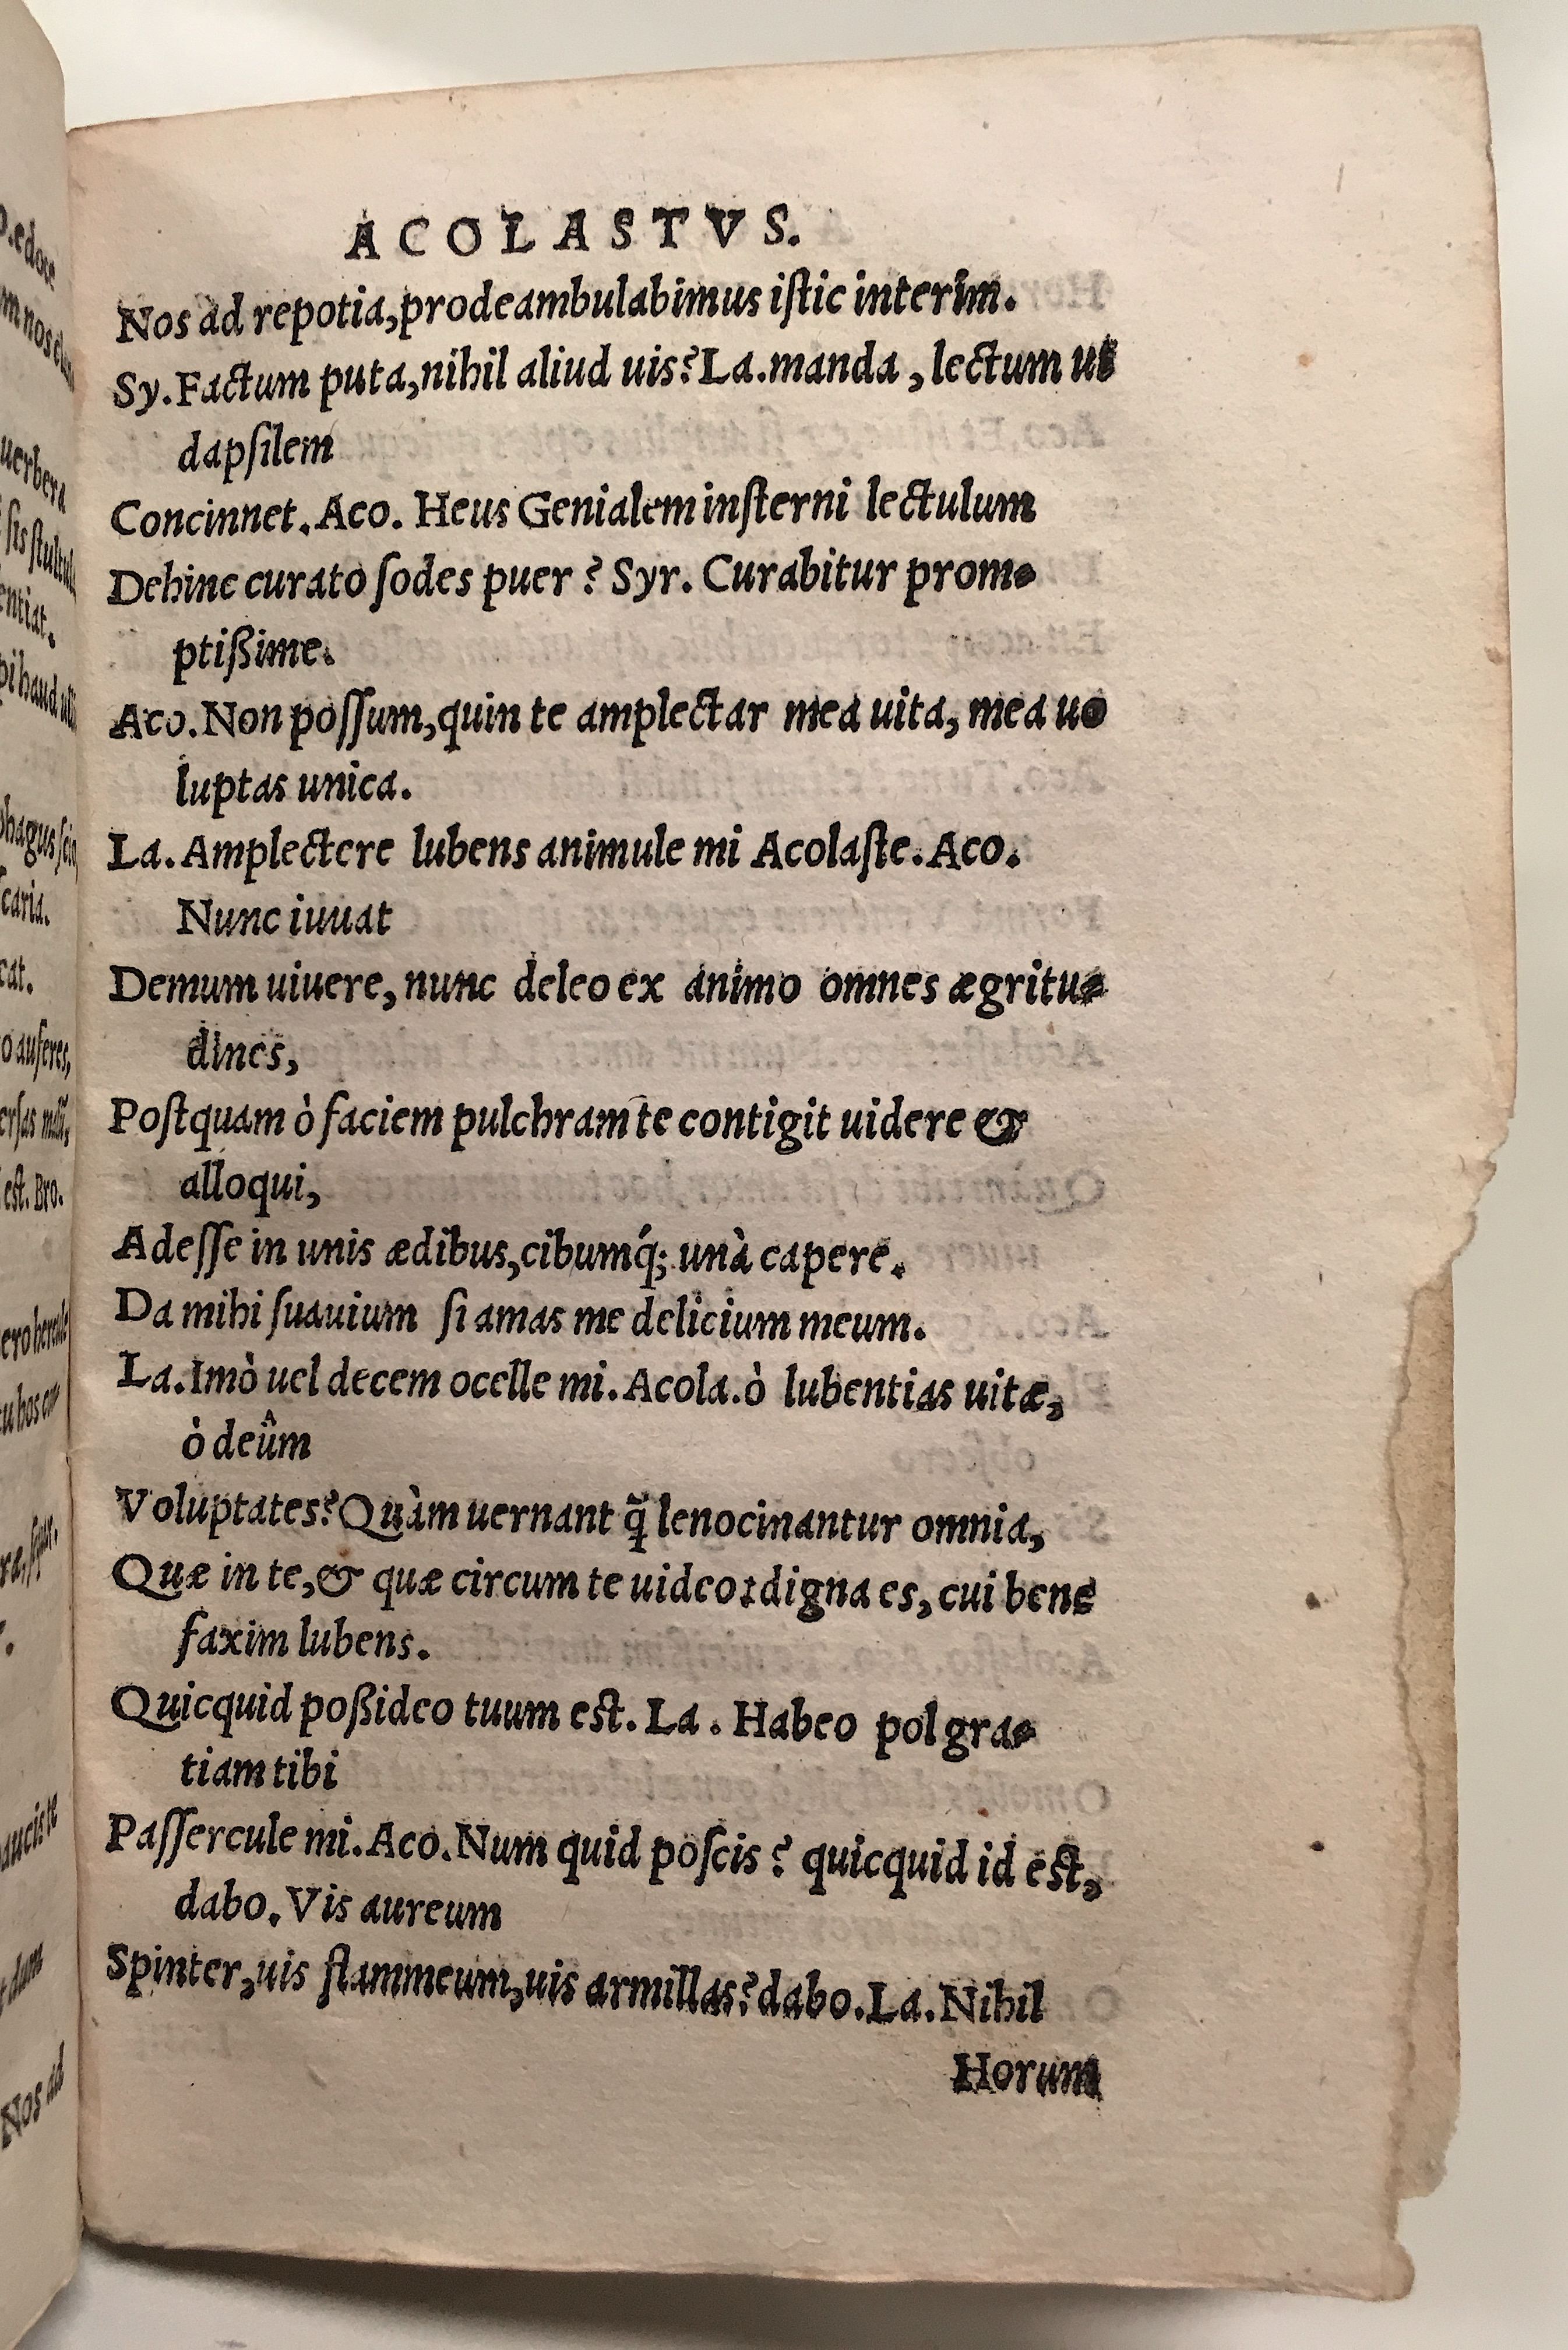 ACOLASTVS.
Nos ad repotia, prodeambulabimus iſtic interim.
Sy. Factum puta, nihil aliud uis? La. manda, lectum ut
dapſilem
Concinnet. Aco. Heus Genialem inſterni lectulum
Dehinc curato ſodes puer? Syr. Curabitur prom-
ptißime.
Aco. Non poſſum, quin te amplectar mea uita, mea uo
luptas unica.
La. Amplectere lubens animule mi Acolaſte. Aco.
Nunc iuuat
Demum uiuere, nunc deleo ex animo omnes ægritu-
dines,
Poſtquam ò faciem pulchram te contigit uidere &
alloqui,
Adeſſe in unis ædibus, cibumq́; unà capere.
Da mihi ſuauium ſi amas me delicium meum.
La. Imò uel decem ocelle mi. Acola. ò lubentias uitæ,
ò deûm
Voluptates? Quàm uernant q̃ lenocinantur omnia,
Quæ in te, & quæ circum te uideo: digna es, cui bene
faxim lubens.
Quicquid poßideo tuum est. La. Habeo pol gra-
tiam tibi
Paſſercule mi. Aco. Num quid poſcis? quicquid id est,
dabo. Vis aureum
Spinter, uis flammeum, uis armillas? dabo. La. Nihil
Horum